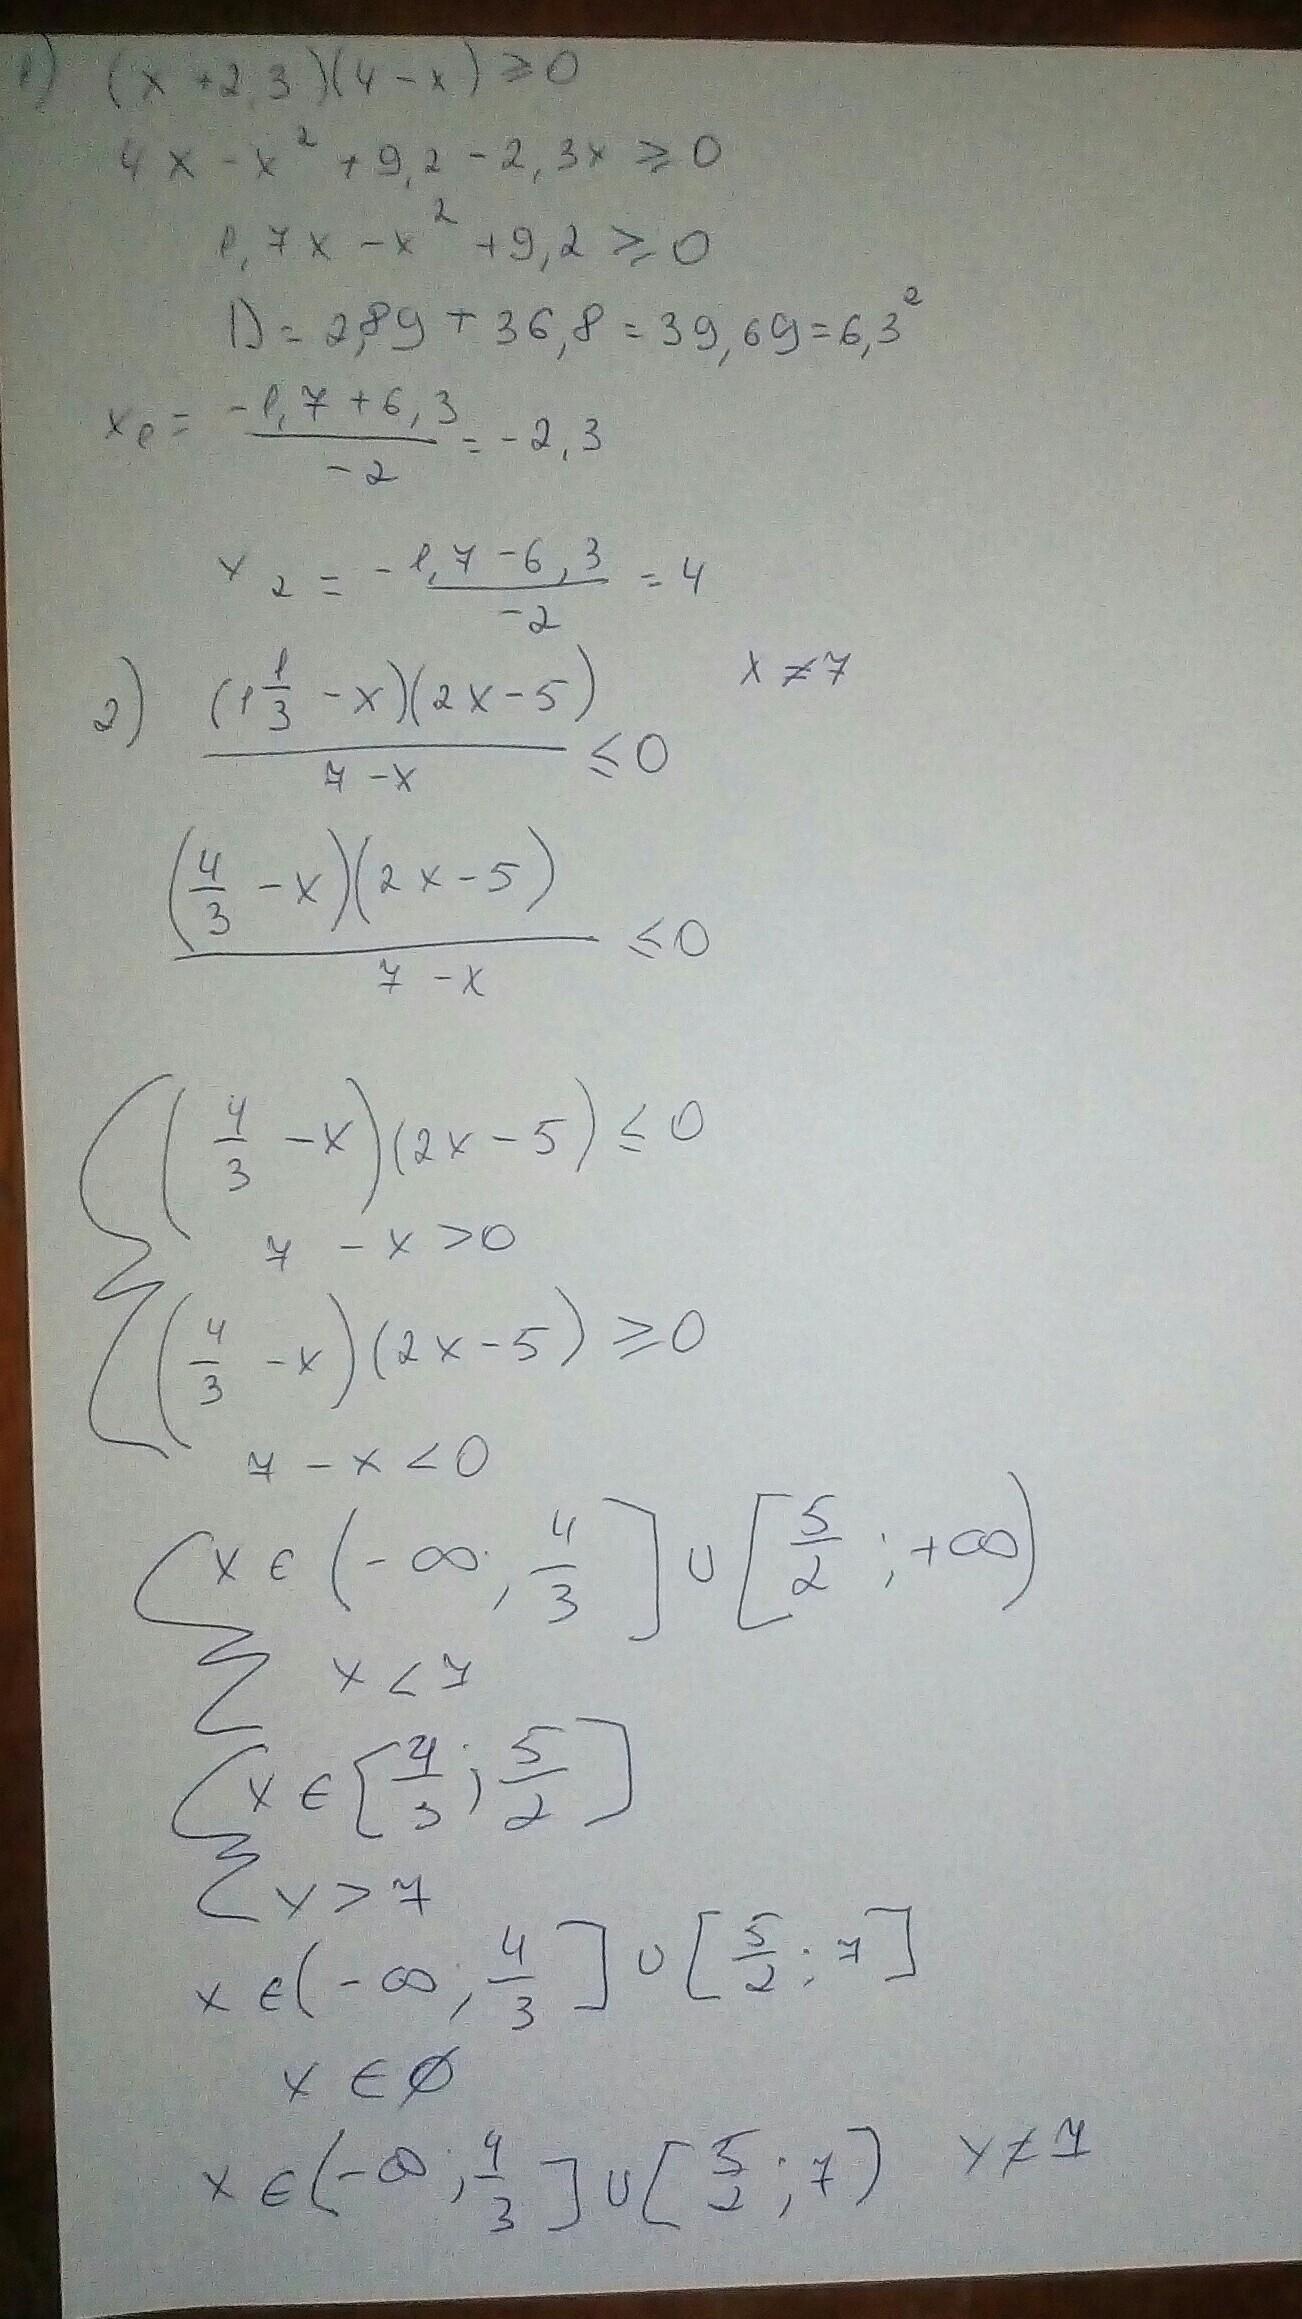 1) (x+2,3)(4-x)≥0
4x-x²+9,2-2,3x≥0
1,7x-x²+9,2≥0
D=2,89+36,8=39,69=6,3²
x₁=(-1,7+6,3)/(-2)=-2,3
x₂=(-1,7-6,3)/(-2)=4
2) ((1 1/3-x)(2x-5))/(7-x)≤0 x≠7
((4/3-x)(2x-5))/(7-x)≤0
{(4/3-x)(2x-5)≤0
7-x>0
(4/3-x)(2x-5)≥0
7-x<0
{x∈(-∞;4/3]∪[5/2;+∞)
x<7
{x∈[4/3;5/2]
x>7
x∈(-∞;4/3]∪[5/2;7]
x∈∅
x∈(-∞;4/3]∪[5/2;7) x≠7